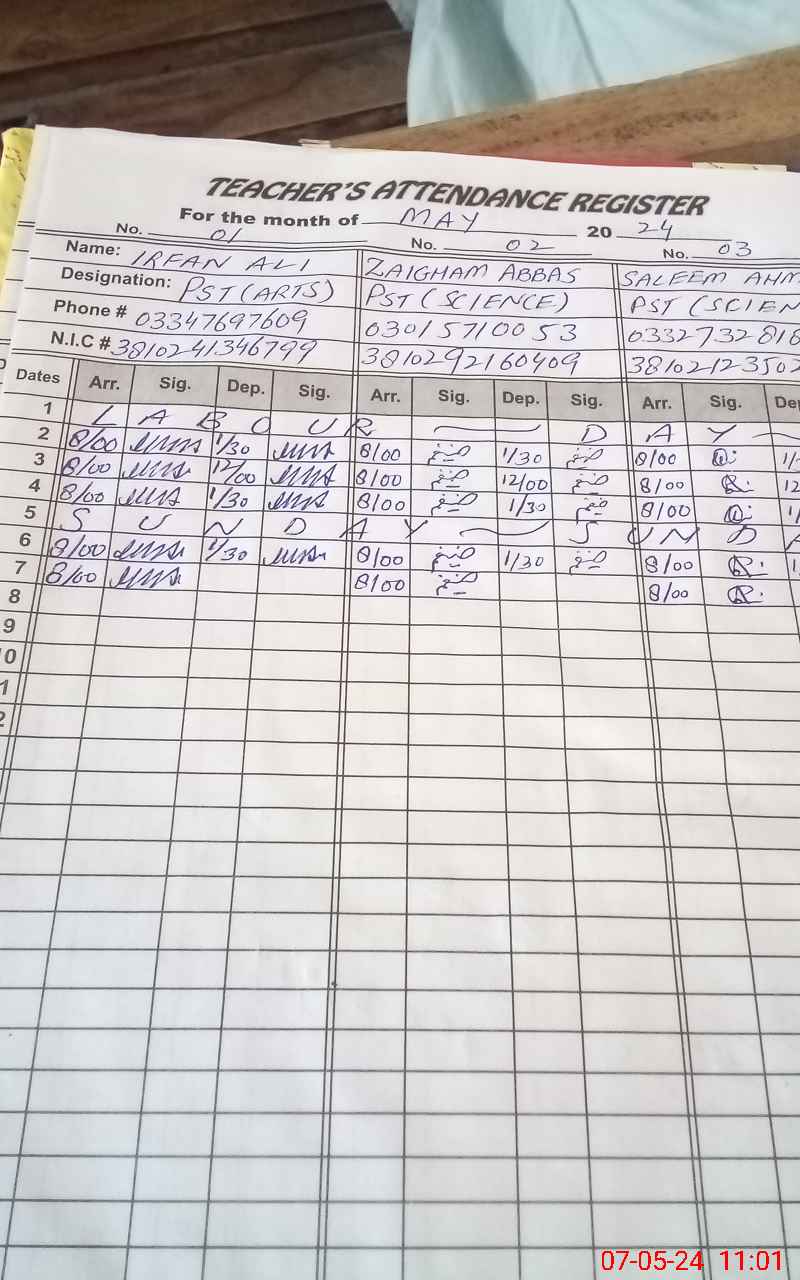 TEACHER'S ATTENDANCE REGISTER
For the month of MAY 20 24
No. 01 No. 02 No. 03
Name: IRFAN ALI ZAIGHAM ABBAS SALEEM AHM
Designation: PST (ARTS) PST (SCIENCE) PST (SCIEN
Phone # 03347697609 03015710053 0332732816
N.I.C # 3810241346799 3810292160409 38102123502
Dates Arr. Sig. Dep. Sig. Arr. Sig. Dep. Sig. Arr. Sig. De
1 LABOUR DAY
2 8/00 1/30 8/00 1/30 8/00 1/
3 8/00 12/00 8/00 12/00 8/00 12
4 8/00 1/30 8/00 1/30 8/00 1
5 SUNDAY SUNDA
6 8/00 1/30 8/00 1/30 8/00 1
7 8/00 8/00 8/00
8
9
0
1
2
07-05-24 11:01